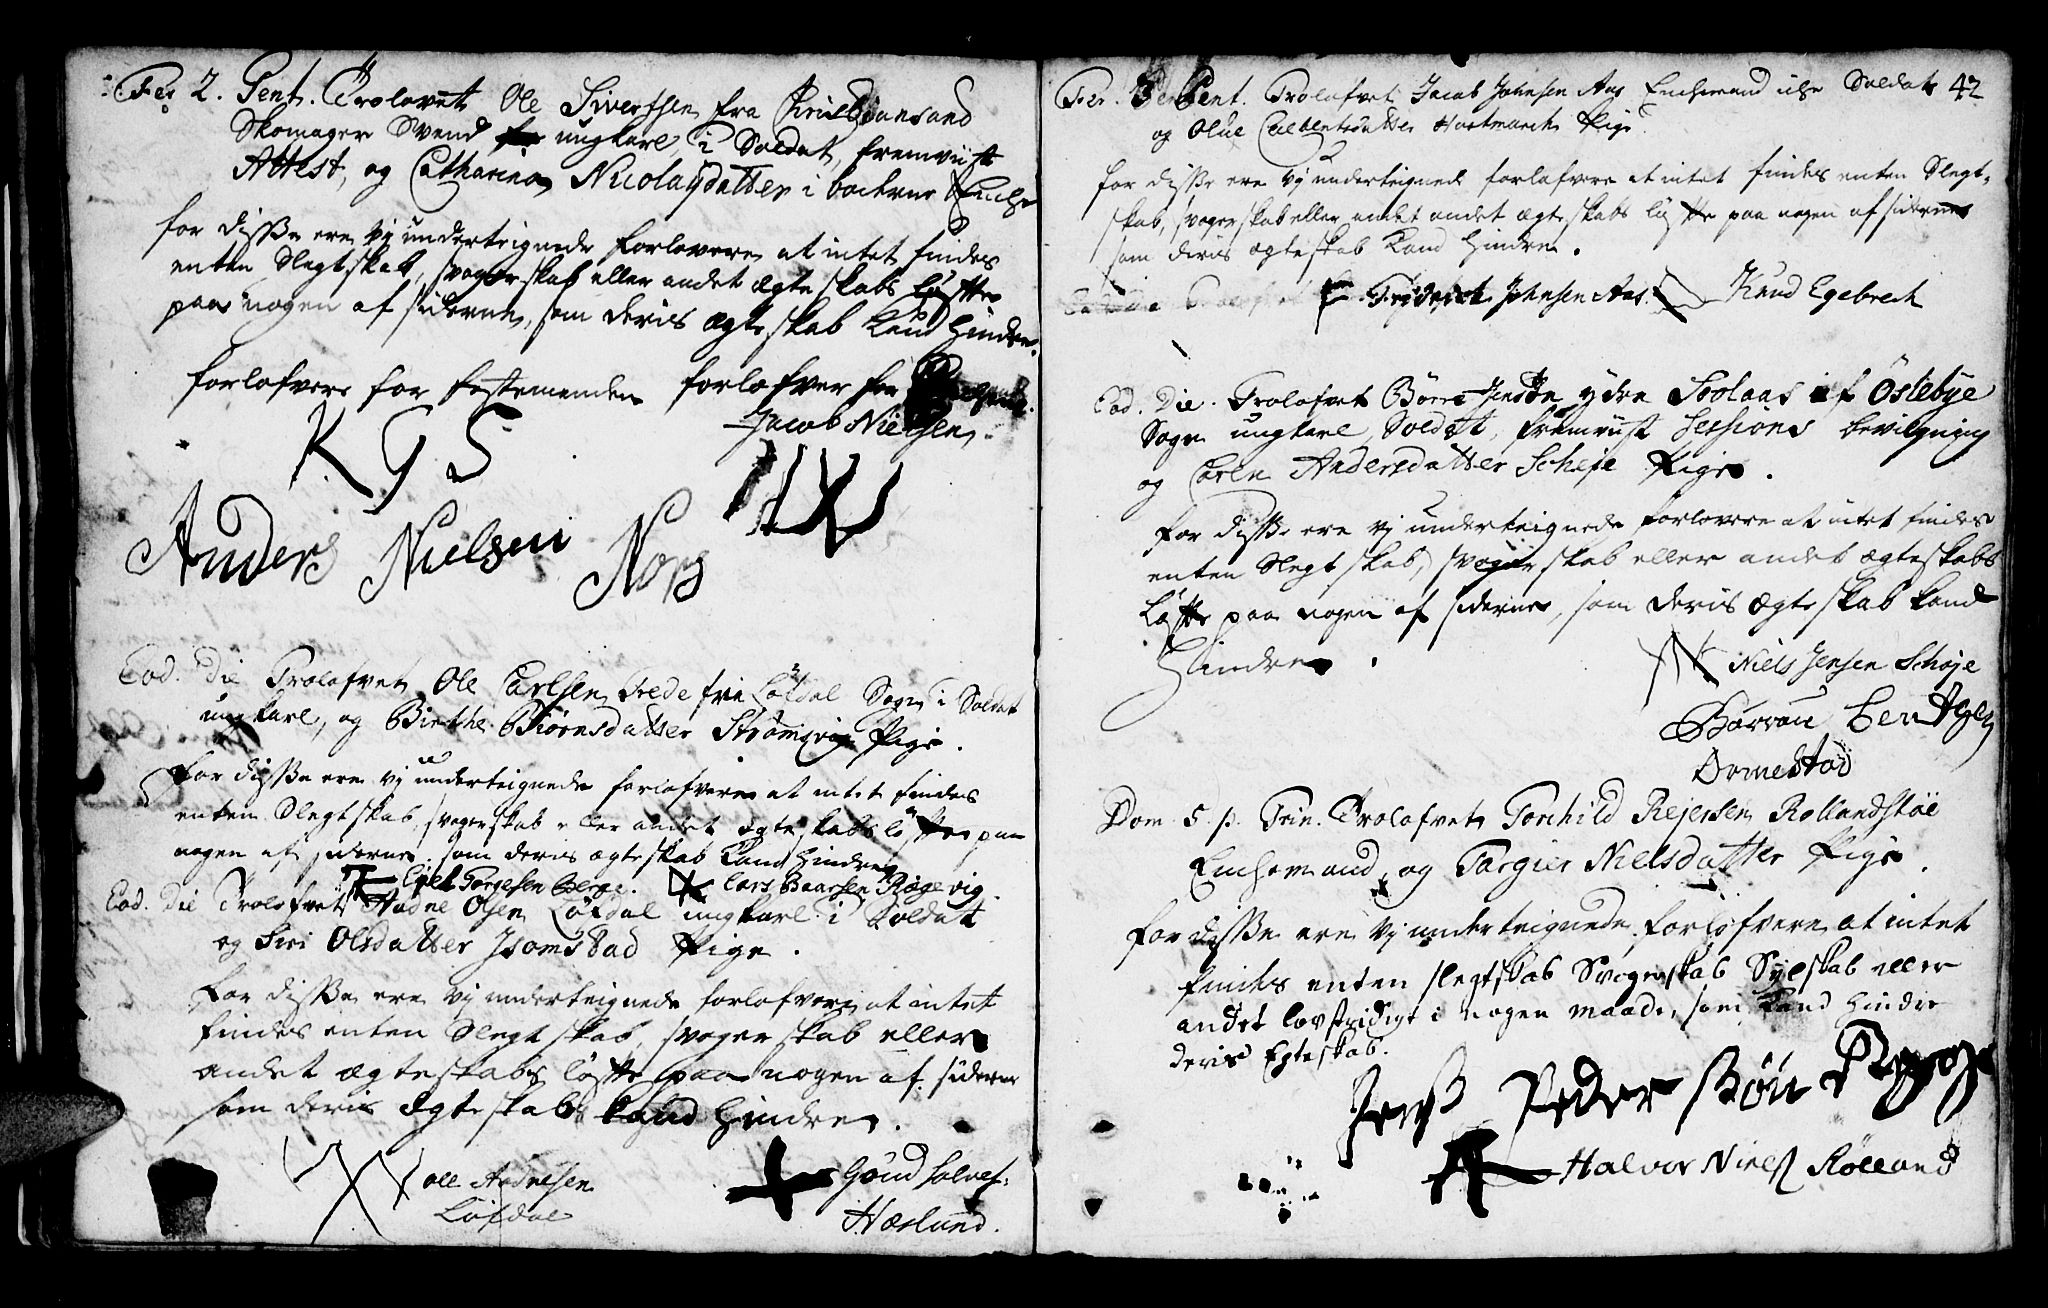 Fer 2. Pent. Trolovet Ole Siversen fra Christiansand
Skomager Svend ungkarl i Soldat, fremviist
Attest, og Catharina Nicolaysdatter i
for disse ere vj underteignede forlovere at intet findes
enten Slegtskab, svogerskab eller andet ægteskabs løfte
paa nogen af siderne, som deris ægteskab kand hindre.
forlofvere for festemanden forlofver for
Jacob Nielsen.
K G S
Anders Nielsen Nors
Eod. Die Trolofvet Ole Carlsen Trede fra Løfdal Sogn i Soldat
ungkarl, og Birthe Biørnsdatter Strømsvig Pige.
For disse ere vj underteignede forlofvere at intet findes
enten Slegtskab, svogerskab eller andet ægteskabs løfte paa
nogen af siderne, som deris ægteskab kand hindre
Torgesen Berge. Lars Baarsen Røgevig
Eod. Die Trolofvet Audne Olsen Løfdal ungkarl i Soldatt
og Siri Olsdatter Isomstad Pige.
For disse ere vj underteignede forlofvere at intet
findes enten Slegtskab, svogerskab eller
andet ægteskabs løfte paa nogen af siderne
som deris ægteskab kand hindre.
Oll Audnesen
Løfdal
Goud Salves:
Hæslund.
42
Fer. Pent. Trolofvet Jacob Johnsen Aas Enchemand iche Soldat
og Olue Hortmarch Pige.
for disse ere vj underteignede forlofvere at intet findes enten Slegt-
skab, svogerskab eller andet andet ægteskabs løfte paa nogen af siderne
som deris ægteskab kand hindre.
Friderich Johnsen Aas. Knud Egebrech
Eod. Die. Trolofvet Børre Jensen ydre Soolaas af Östebye
Sogn ungkarl, Soldatt, fremviist Sessions bevilgning
og Karen Andersdatter Scheje Pige.
for disse ere vj underteignede forlovere at intet findes
enten Slegtskab, svogerskab eller andet ægteskabs
løfte paa nogen af siderne, som deris ægteskab kand
hindre.
Niels Jensen Schøje
Bentsen
Dornestad
Dom. 5. p. Trin. Trolofvet Torchild Rejersen Rollandstøe
Enchemand, og Torgier Nielsdatter Pige.
for disse ere vj underteignede forlofvere at intet
findes enten slegtskab Svogerskab Sylskab eller
andet lovstridigt i nogen maade, som kand hindre
deris Egteskab.
Peder
Halvor Niels Rølland